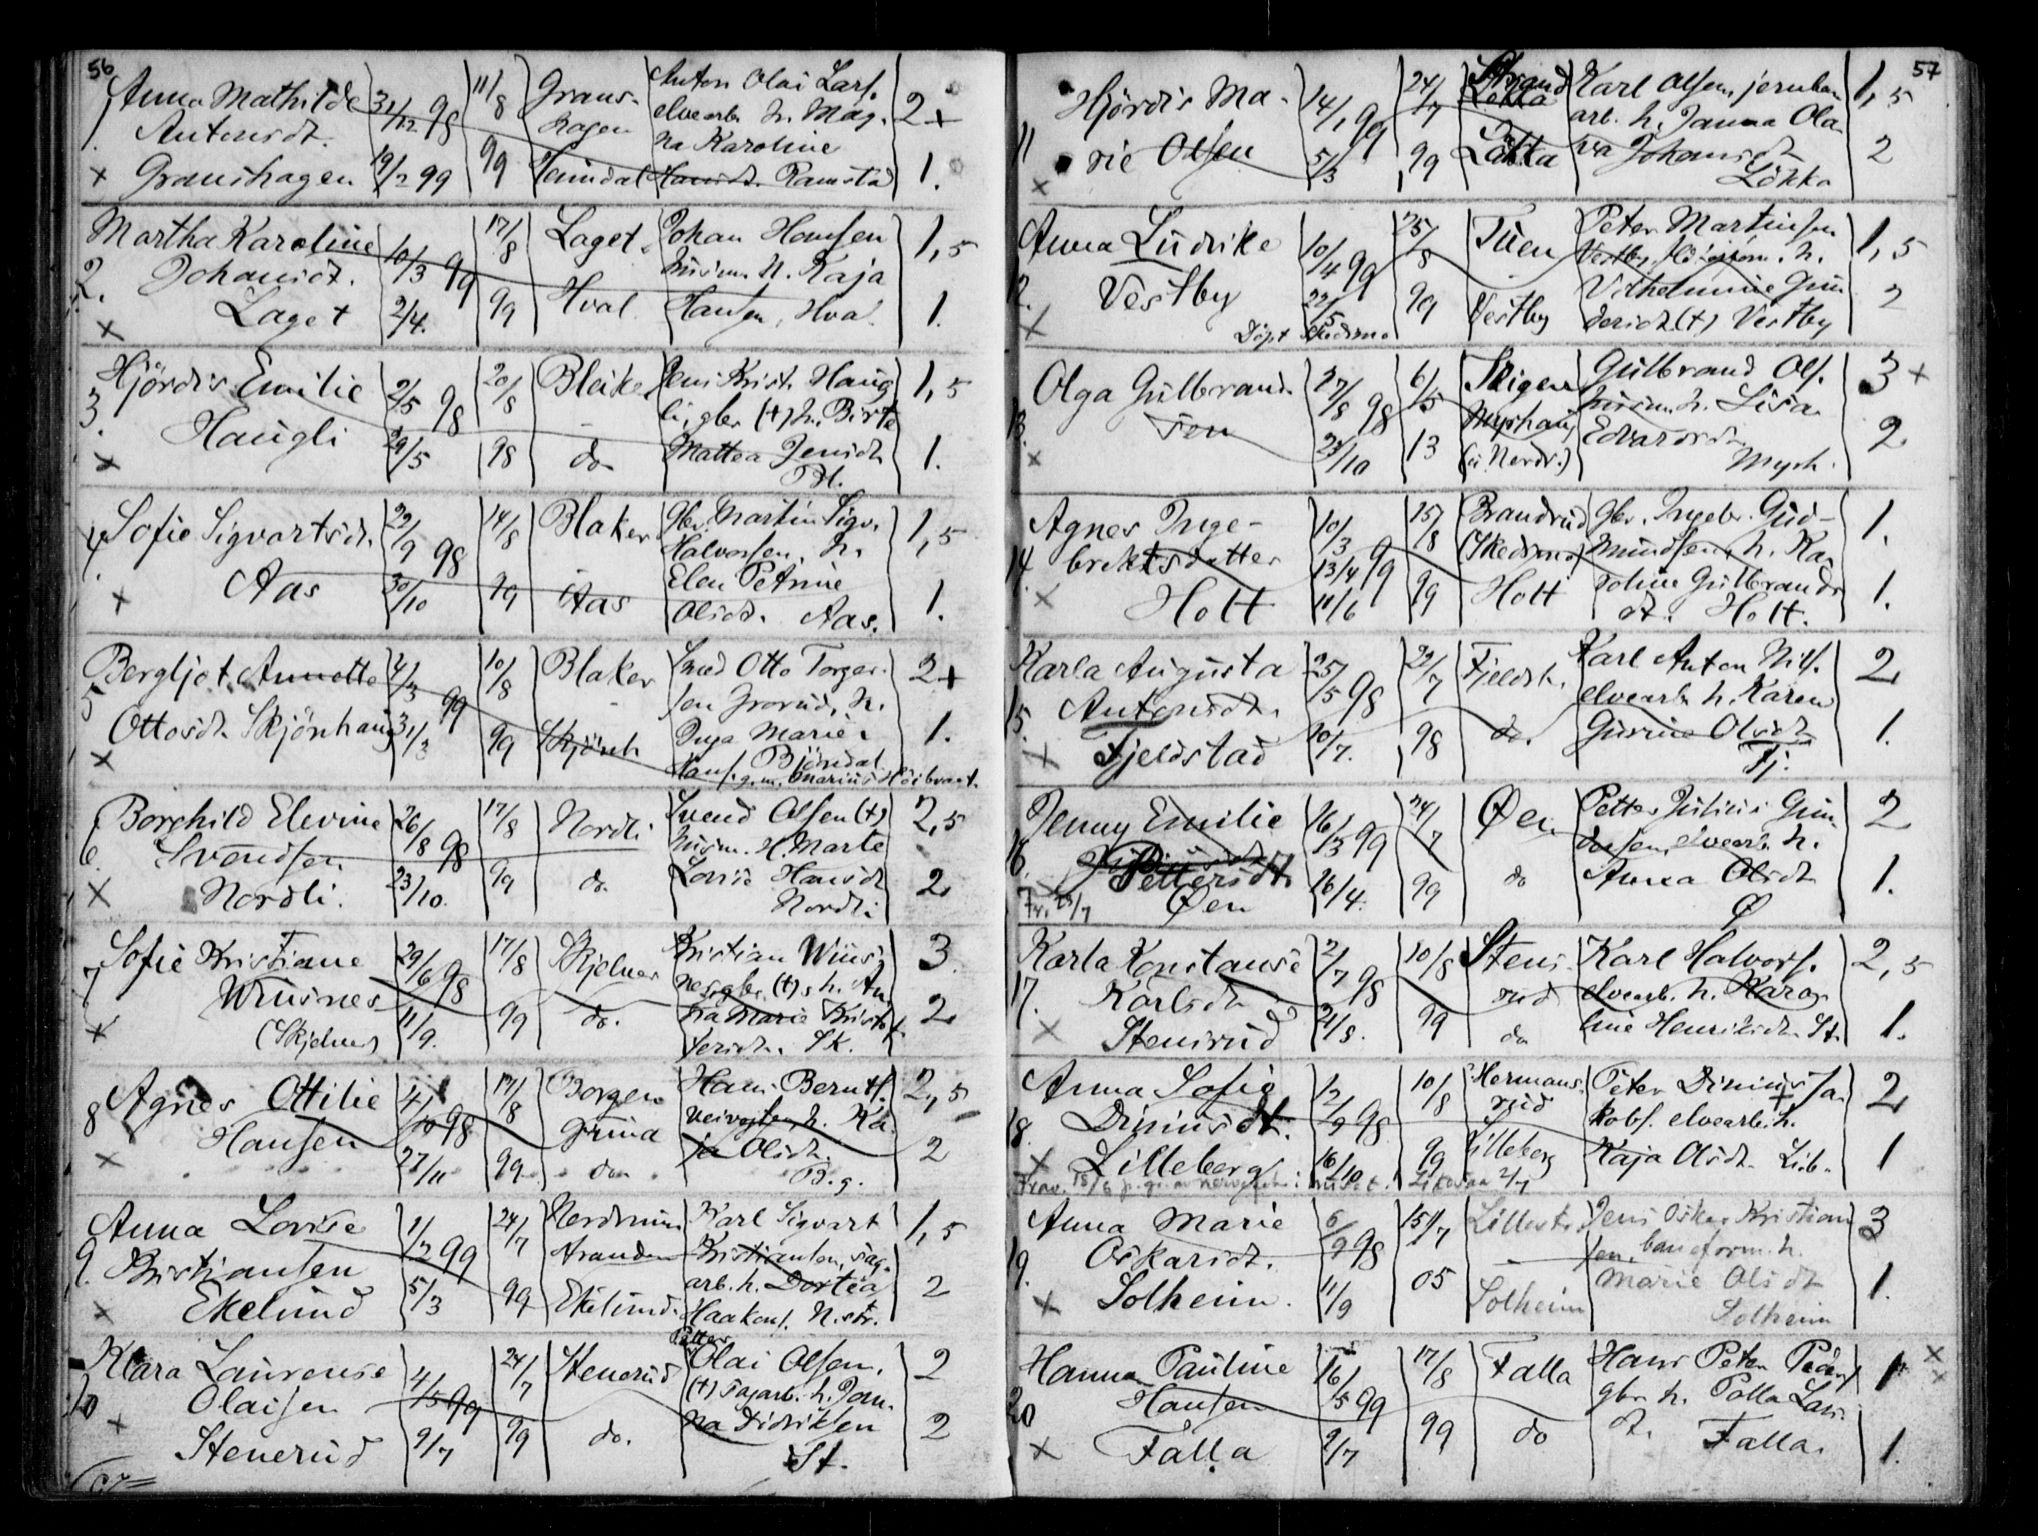 56
1. Anna Mathilde 31/12 98 11/8 Grans- Anton Olai Lars. 2+
Antonsdt. hagen elvearb. h. Mag-
na Karoline
x Granshagen 19/2 99 99 Heimdal Hansdt. Ramstad 1.
Martha Karoline 10/3 99 17/8 Laget Johan Hansen 1,5
2. Johansdt. husm. h. Kaja
x Laget 2/4. 99 Hval. Hansen, Hval. 1.
Hjördis Emilie 2/5 98 20/8 Blaker Jens Krist. Haug 1,5
3. li, gbr. (+) h. Birte
x Haugli 29/5 98 do Mattea Jensdt. 1.
Bl.
4. Sofie Sigvartsdt. 22/9 98 14/8 Blaker Gbr. Martin Sigv. 1,5
Halvorsen, h.
x Aas 30/10 99 Aas Elen Petrine
Olsdt. Aas. 1.
5 Bergljot Annette 4/3 99 10/8 Blaker Smed Otto Torger- 2+
sen h.
x Ottosdt. Skjönhaug 31/3 99 Skjönh. Inga Marie 1.
Hans. Björndal
g.m. Marius Höibraat.
Borghild Elevine 26/8 98 17/8 Nordli Svend Olsen (+) 2,5
6. Svendsen husm. H. Marte
x Nordli. 23/10. 99 do. Lovise Hansdt 2
Nordli
Sofie Kristiane 29/6 98 17/8 Skjelnes Kristian Wiius- 3.
7 Wiiusnes nes gbr. (+), h. An-
na Marie Kristof- 2
x (Skjelnes) 11/9. 99 do. fersdt. Sk.
8 Agnes Ottilie 4/10 98 17/8 Borgen Hans Berntf. 2,5
Hansen grind veivogter, h. Ka-
x 27/11 99 do. ja Olsdt. 2
B.g.
Anna Lovise 1/2 99 24/7 Nordrum Karl Sigvart 1,5
9. Kristiansen Kristiansen, sag-
arb. h. Dortea
x Ekelund 5/3 99 Ekelund. Haakons. N.str. 2
Petter
Klara Laurense 4/5 99 24/7 Stenerud Olai Olsen, 2
10 Olaisen (+) sagarb. h. Jon-
x na Didriksen 2
Stenerud 9/7 99 do. St.
57
Hjördis Ma- 14/1 99 24/7 Strand Karl Olsen, jernban 1,5
Løkka arb. h. Janna Ola-
11 rie Olsen 5/3 99 Løkka va Johansdt 2
x Løkka
Anna Ludrike 10/4 99 25/8 Tuen Peter Martinsen 1,5
Vestby, h.
12. Vestby 22/5 99 Vestby Vilhelmine Gun 2
x Döpt Skedsmo dersdt. (+) Vestby
Olga Gulbrand- 27/8 98 6/5 Skigen Gulbrand Ols. 3+
13. sen Myrhaug husm. h. Lisa
x 23/10 13 (ü. Nerdr.) Edvardsdt. 2.
Myrh.
Agnes Inge- 10/3 99 15/8 Brandrud Gbr. Ingebr. Gud- 1.
14. brektsdatter 13/4 (Skedsmo) mundsen, h. Ka-
x Holt 11/6 99 Holt roline Gulbrands 1.
dt. Holt.
Karla Augusta 25/5 98 22/7 Fjeldst. Karl Anton Nils. 2
15. Antonsdt. elvearb. h. Karen
x Fjeldstad 10/7. 98 do. Gurine Olsdt 1.
Fj.
Jenny Emilie 16/3 99 24/7 Øen Petter Julius Gun 2
16. Pettersdt. dersen, elvearb. h.
16/4. 99 do Anna Olsdt 1.
Fr. 23/7 Øen Ø
Karla Konstanse 2/7 98 10/8 Stens- Karl Halvors. 2,5
17. Karlsdt rud elvearb. h. Karo-
x Stensrud 21/8. 99 do line Henriksdt. St. 1.
Anna Sofie 1/9 98 10/8 Hermans- Peter Dinius Ja- 2
18. Diniusdt. rud kobs. elvearb. h.
x Lilleberg 16/10 99 Lilleberg Kaja Olsdt. Lilb. 1
Frav. 15/6 p. gr. av i huset.
Anna Marie 6/9 98 15/7 Lillestr. Jens Oskar Kristian 3
19. Oskarsdt. sen, baneform. h.
x Solheim. 11/9 05 Solheim Marie Olsdt 1.
Solheim
Hanna Pauline 16/5 99 17/8 Falla Hans Peter Peders 1 x
20 Hansen gbr. h. Polla Lars- x
x Falla 2/7 99 do dt. Falla. 1.